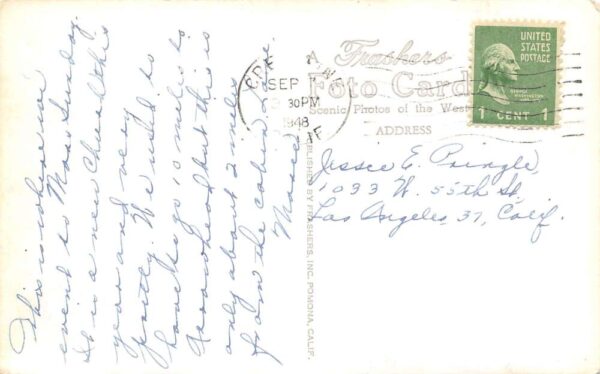 This is where we
went to Mass Sunday.
It is a new Church this
year and very
pretty. We used to
have to go 10 miles to
Arrowhead but this is
only about 2 miles
from the cabin. Love.
CRE
SEP
30PM
1948
Frashers
Foto Card
Scenic Photos of the West
ADDRESS
UNITED
STATES
POSTAGE
GEORGE
WASHINGTON
1 CENT 1
Jessie E. Pringle,
1033 W. 55th St,
Los Angeles 37, Calif.
PUBLISHED BY FRASHERS, INC. POMONA, CALIF.